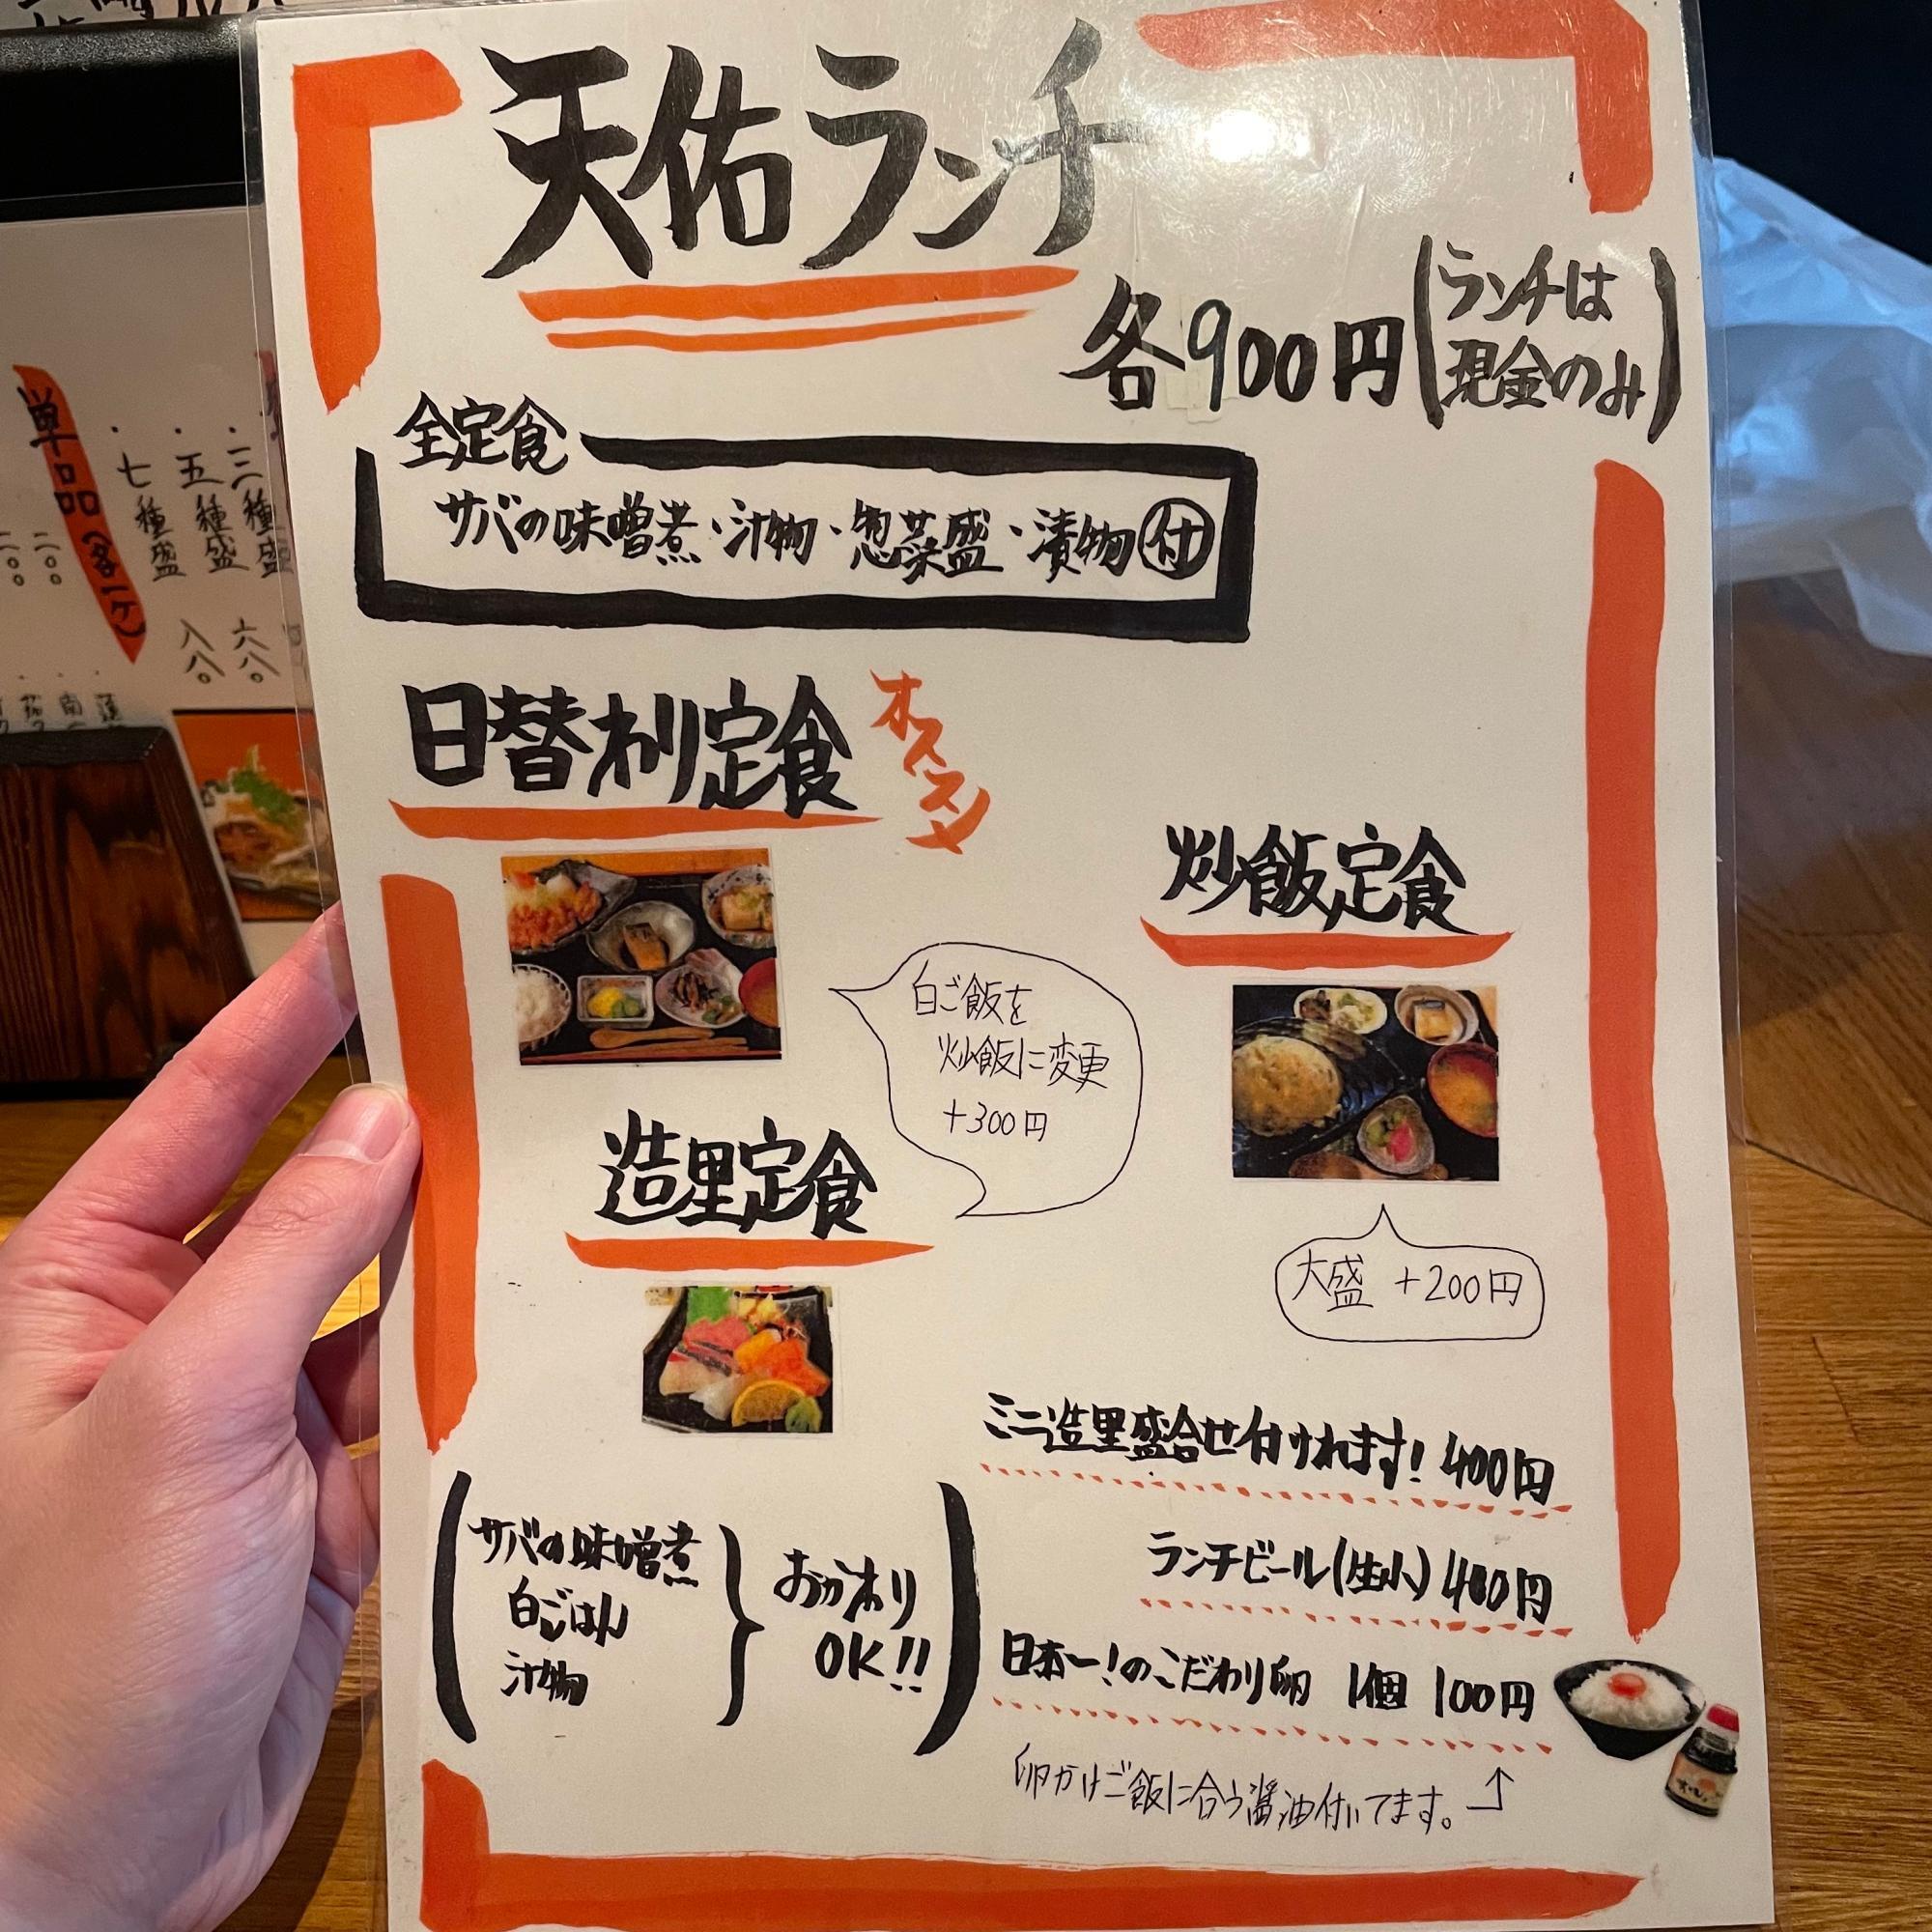 天佑ランチ
各900円(ランチは
現金のみ)
全定食
サバの味噌煮・汁物・惣菜盛・漬物付
日替わり定食
オススメ
炒飯定食
白ご飯を
炒飯に変更
+300円
造里定食
大盛 +200円
ミニ造里盛合せ付けれます! 400円
ランチビール(生小) 400円
日本一!のこだわり卵 1個 100円
卵かけご飯に合う醤油付いてます。
サバの味噌煮
白ごはん
汁物
おかわり
OK!!
単品(各一ケ)
・三種盛 六八〇
・五種盛 八八〇
・七種盛
二〇〇
二〇〇